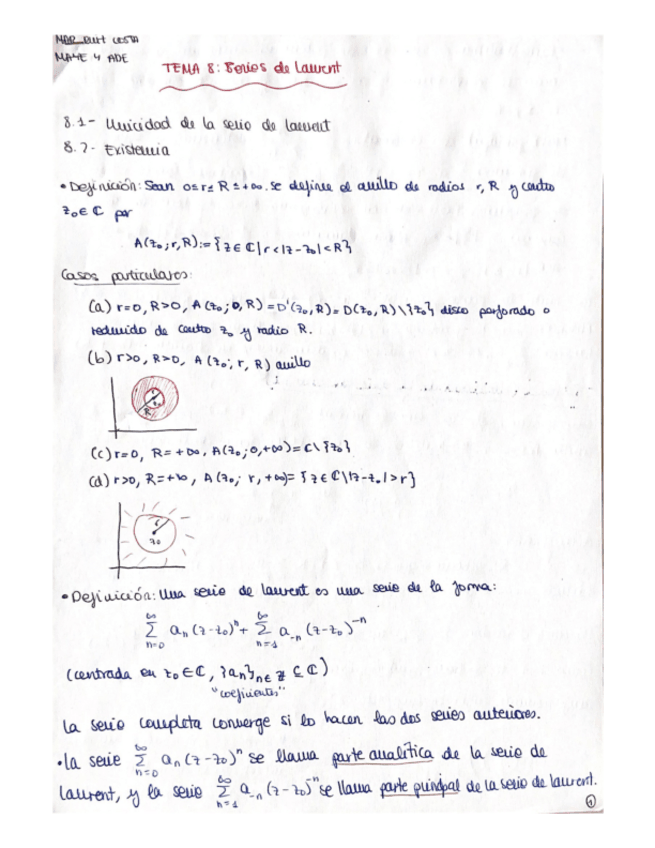 MAYE 4 ADE
TEMA 8: Series de Laurent
8.1- Unicidad de la serie de Laurent
8.2- Existencia
• Definición: Sean 0≤r≤R≤+∞. Se define el anillo de radios r, R y centro
z₀∈ℂ por
A(z₀;r,R):={z∈ℂ|r<|z-z₀|<R}
Casos particulares:
(a) r=0, R>0, A(z₀;0,R)=D'(z₀,R)=D(z₀,R)\{z₀} disco perforado o
reducido de centro z₀ y radio R.
(b) r>0, R>0, A(z₀; r, R) anillo
R
(c) r=0, R=+∞, A(z₀;0,+∞)=ℂ\{z₀}
(d) r>0, R=+∞, A(z₀; r,+∞)={z∈ℂ\|z-z₀|>r}
r
z₀
• Definición: Una serie de Laurent es una serie de la forma:
∞∑n=0 aₙ(z-z₀)ⁿ + ∞∑n=1 a₋ₙ(z-z₀)⁻ⁿ
(centrada en z₀∈ℂ, {aₙ}n∈ℤ ⊆ ℂ)
"coeficientes"
La serie completa converge si lo hacen las dos series anteriores.
• La serie ∞∑n=0 aₙ(z-z₀)ⁿ se llama parte analítica de la serie de
Laurent, y la serie ∞∑n=1 a₋ₙ(z-z₀)⁻ⁿ se llama parte principal de la serie de Laurent.
1